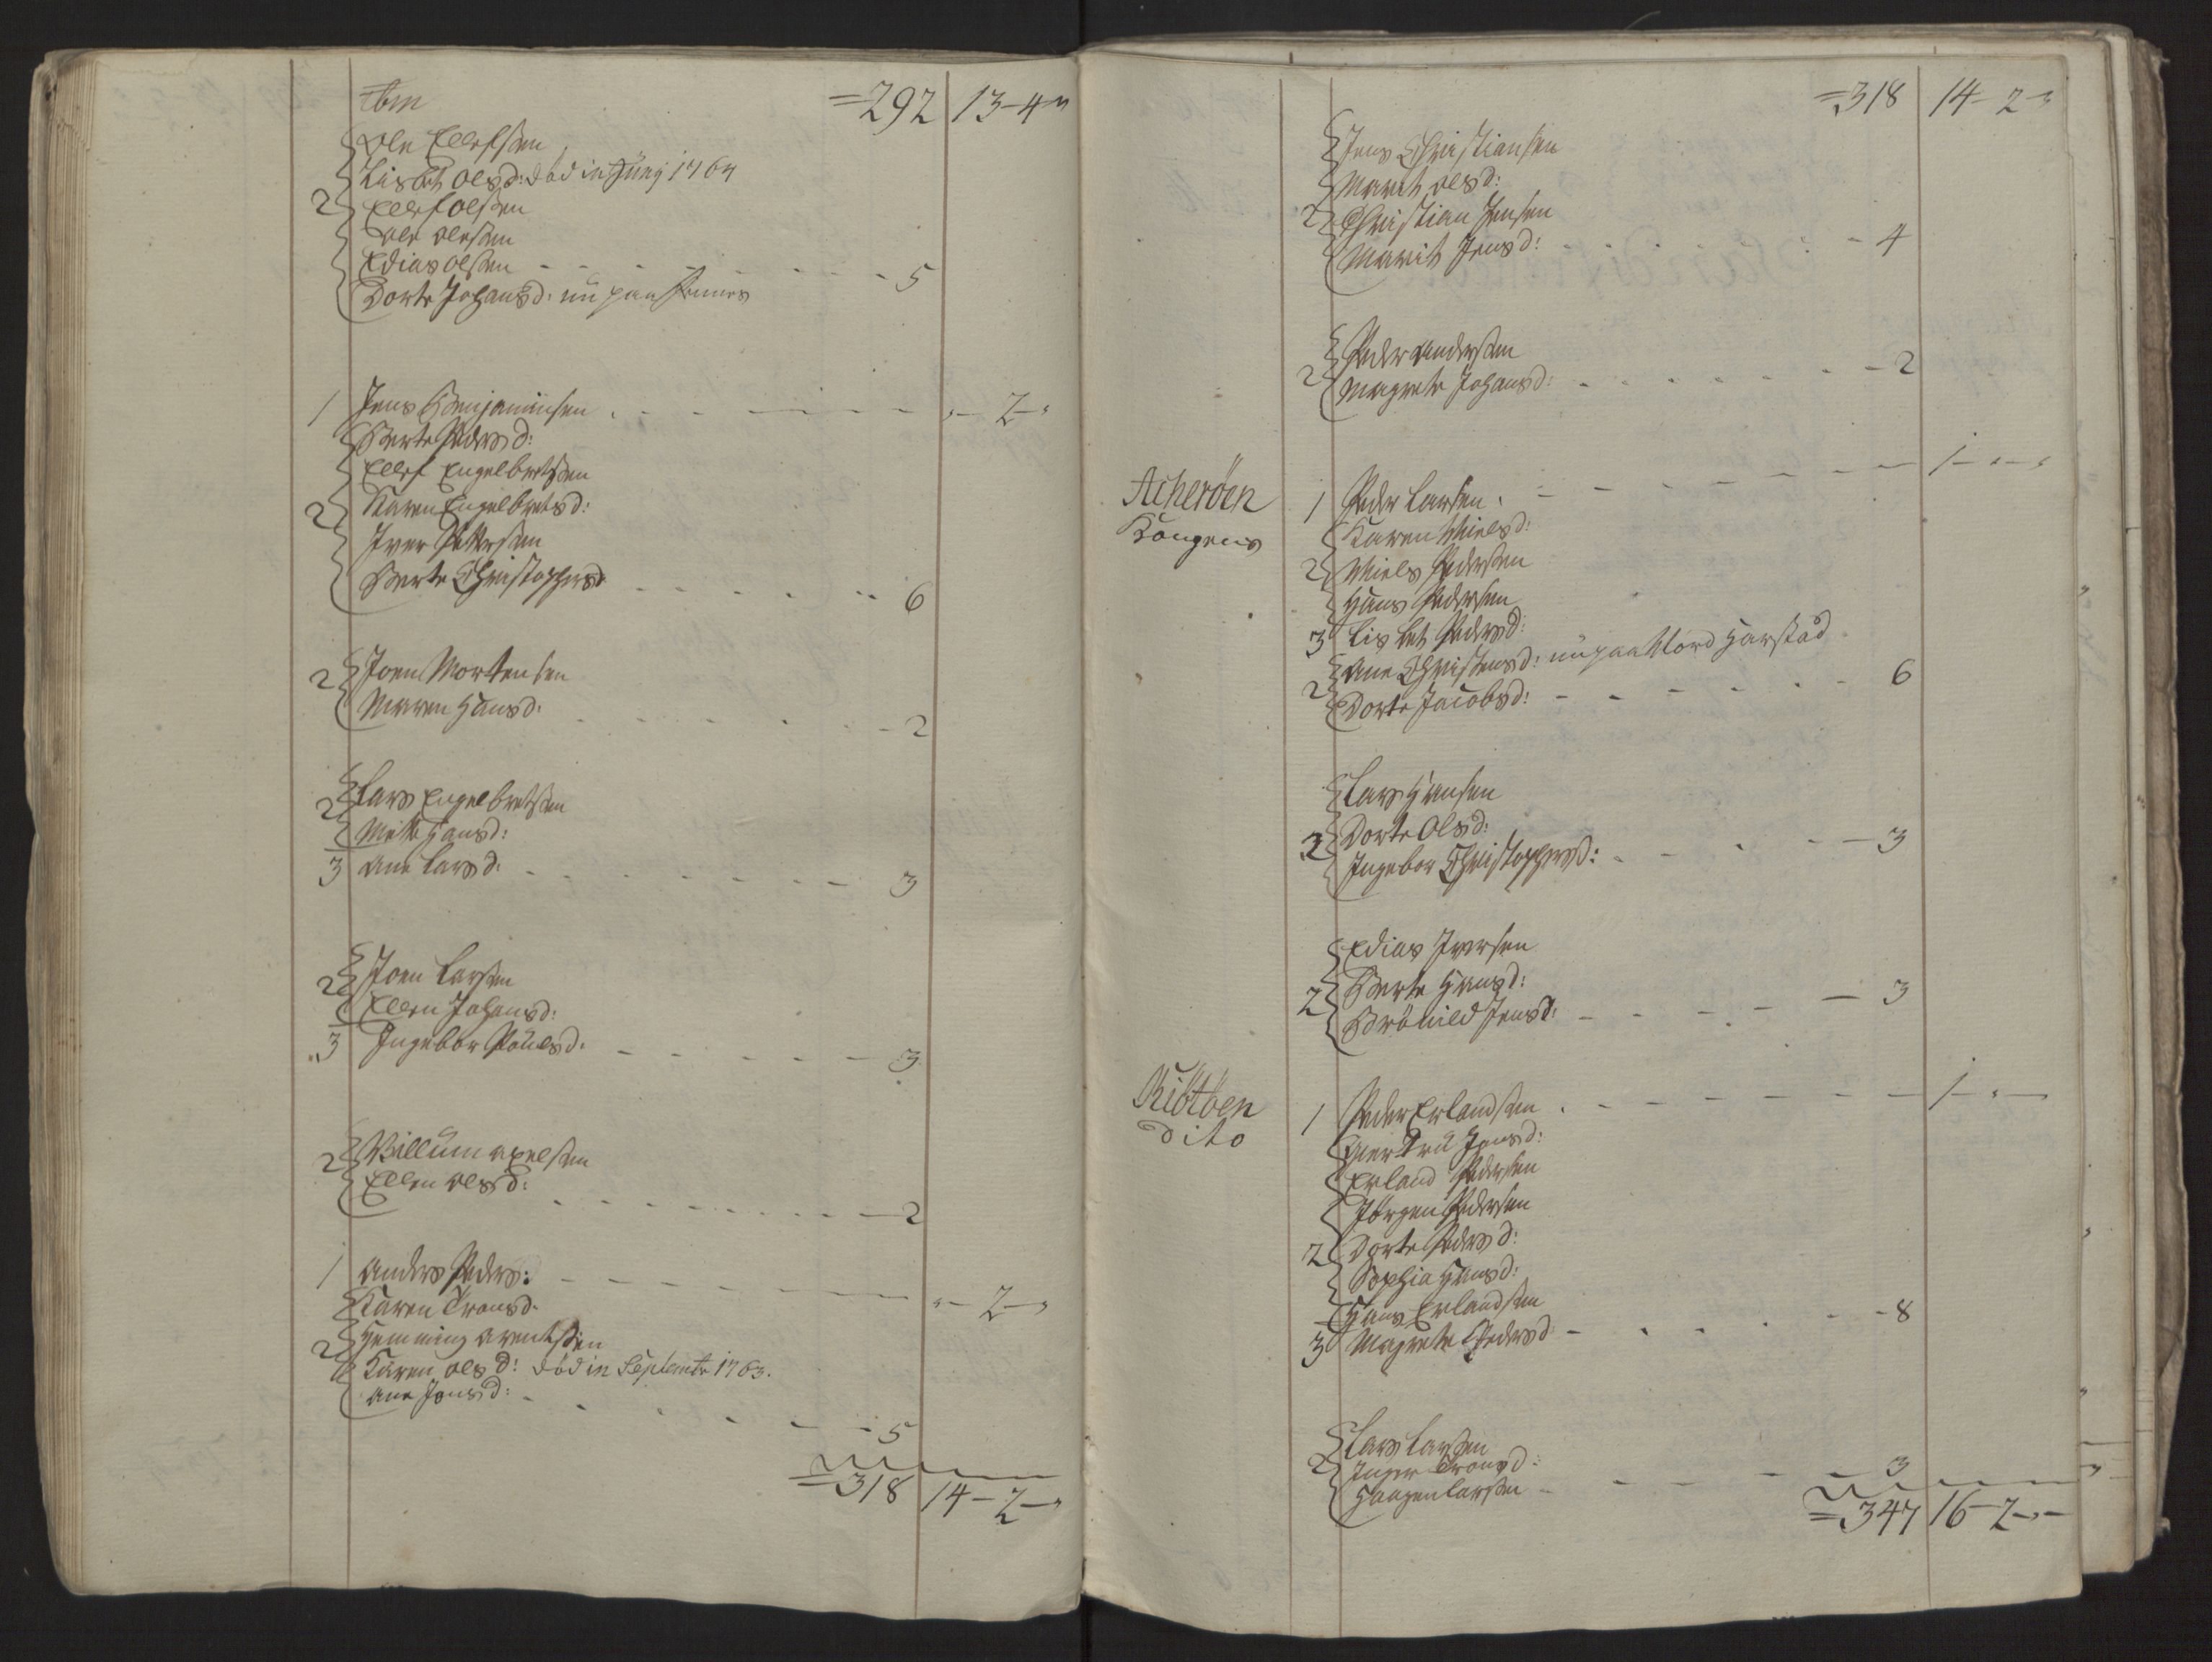 Ibm =292 13-4-"
Ole Ellefssen
Lisbet Olsd: død in Junj 1764
2 Ellef Olssen
Ole Olessen
Edias Olssen - - - - - - - - 5
Dorte Johansd: nu paa
1 Jens Benjaminsen - - - - - - - "- 2-"
Berte Pedersd:
Ellef Engelbretssen
2 Karen Engelbretsd:
Iver Pettersen
Berte Christophersd - - - - - - 6
2 Joen Mortensen
Maren Hansd: - - - - - - - 2
Lars Engelbretssen
2 Mette Hansd:
3 Ane Larsd: - - - - - - - - 3
2 Joen Larssen
Ellen Johansd:
3 Ingebor Pouelsd: - - - - - - 3
2 Villum Axelssen
Ellen Olsd: - - - - - - - - 2
1 Anders Peders: - - - - - - - "- 2-"
Karen Tronsd.
2 Hemming Arentssen
Karen Olsd: død in Septembr 1763.
Ane Jensd: - - - - - - - 5
=318 14-2-"
=318 14-2-"
Jens Christiansen
Marit Olsd:
2 Christian Jensen
Marit Jensd: - - - - - - - 4
Peder Anderssen
2 Magrete Johansd: - - - - - - - 2
Acherøen 1 Peder Larsen. - - - - - - - 1-"-"
Kongens Karen Nielsd:
2 Niels Pedersen
Hans Pedersen
3 Lisbet Pedersd:
Ane Christensd: nu paa Nord Harstad
2 Dorte Jacobsd: - - - - - - - 6
Lars Hansen
2 Dorte Olsd: - - - - - 3
Ingebor Christophersd:
Edias Iversen
2 Berte Hansd:
Brønild Jensd: - - - - - 3
Kiøtøen 1 Peder Erlandssen. - - - - - - - 1-"-
dito Giertru Jensd:
Erland Pedersen
Jørgen Pedersen
2 Dorte Pedersd:
Sophia Hansd:
Hans Erlandssen
3 Magrete Pedersd - - - - - - 8
Lars Larssen
2 Inger Tronsd:
Haagen Larssen - - - - - 3
=347 16-2-"-